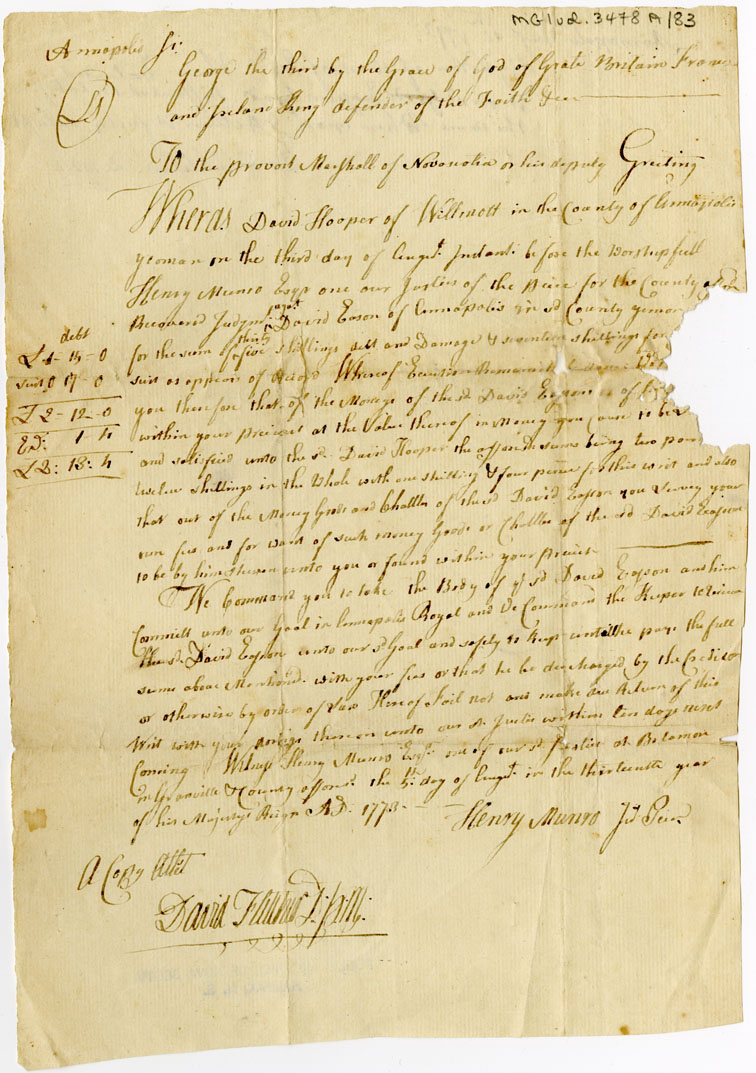 MG1 vol. 3478 A/83
Annapolis Ss:
George the third by the Grace of God of Grate Britain France
LS
and Ireland King defender of the Faith &c
To the provost Marshall of Novascotia or his deputy Greeting
Wheras David Hooper of Willmott in the County of Annapolis
yeoman on the third day of Augst. Instant before the Worshipfull
Henry Munro Esqr one our Justices of the peice for the County
Recovered Judgmt. against David Eason of Annapolis in sd County yeoman
for the sum of thirty five shillings debt and Damage & seventeen shillings for
suit as appears of Record Whereof Execution Remaineth
you therefore that of the Monage of the sd. David Eason
within your precinct at the Value thereof in Money you cause to be
and satisfied unto the sd. David Hooper the afforesd. sums being two poun
twelve shillings in the Whole with one shilling & four pence for this writ and also
that out of the Money Goods and Chattles of the sd David Eason you Levey your
own fees and for want of such money Goods or Chattles of the sd David Eason
to be by him shewn unto you or found within your precinct
debt
£1-15-0
suit 0 17-0
£2-12-0
1-4
£2:13:4
We Command you to take the Body of ye sd David Eason and him
Committ unto our Goal in Annapolis Royal and We Command the Keeper to Receive
the sd. David Eason unto our sd Goal and safely to Keep untill he paye the full
sums above Mentiond. with your fees or that he be discharged by the Creditor
or otherwise by order of Law Hereof fail not and make due Return of this
Writ with your doings thereon unto our sd. Justice within ten days next
Coming Witness Henry Munro Esqr. one of our sd Justice at
in Granville & County afforesd. the 5th. day of Augst. in the thirteenth year
of his Majestys Reign AD. 1773
Henry Munro Js Peace
A Copy Attest
David D:p:M: